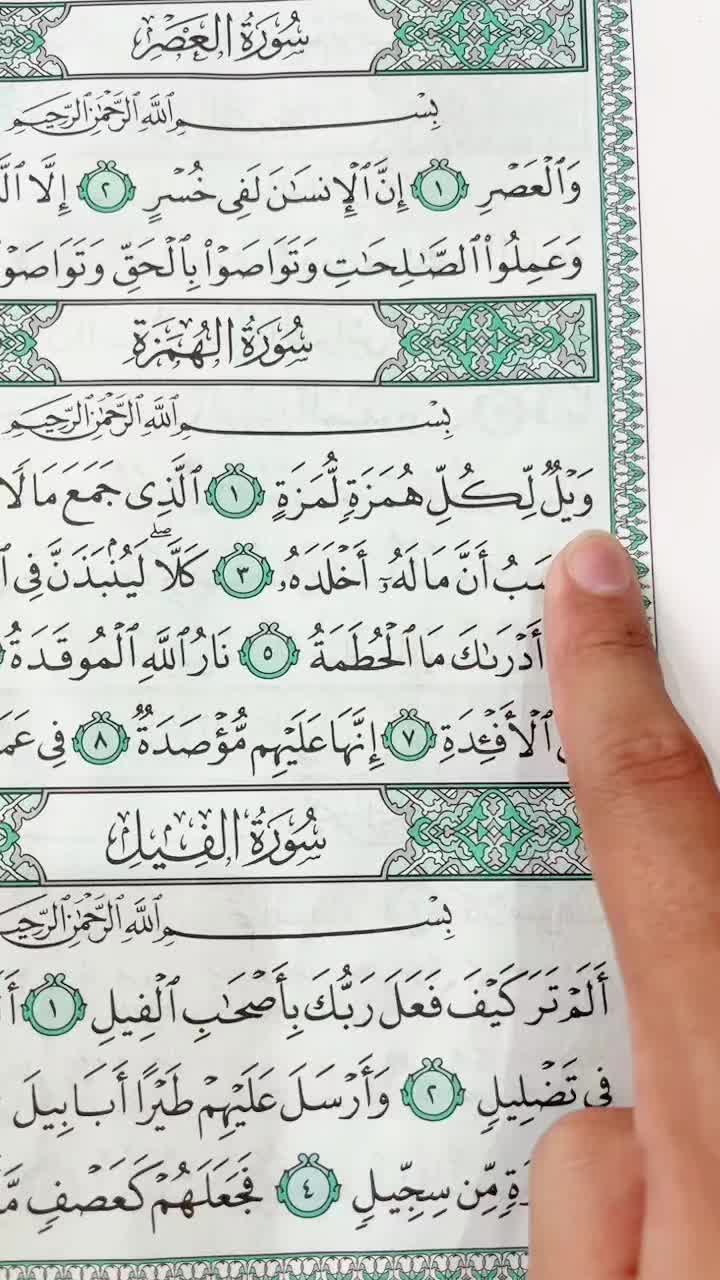 سُورَةُ العَصْرِ
بِسْمِ ٱللَّهِ ٱلرَّحْمَٰنِ ٱلرَّحِيمِ
وَٱلْعَصْرِ ١ إِنَّ ٱلْإِنسَٰنَ لَفِى خُسْرٍ ٢ إِلَّا
وَعَمِلُوا۟ ٱلصَّٰلِحَٰتِ وَتَوَاصَوْا۟ بِٱلْحَقِّ
سُورَةُ الهُمَزَةِ
بِسْمِ ٱللَّهِ ٱلرَّحْمَٰنِ ٱلرَّحِيمِ
وَيْلٌ لِّكُلِّ هُمَزَةٍ لُّمَزَةٍ ١ ٱلَّذِى جَمَعَ مَالًا
أَنَّ مَالَهُۥٓ أَخْلَدَهُۥ ٣ كَلَّا ۖ لَيُنۢبَذَنَّ فِى
أَدْرَىٰكَ مَا ٱلْحُطَمَةُ ٥ نَارُ ٱللَّهِ ٱلْمُوقَدَةُ
ٱلْأَفْـِٔدَةِ ٧ إِنَّهَا عَلَيْهِم مُّؤْصَدَةٌ ٨ فِى
سُورَةُ الفِيلِ
بِسْمِ ٱللَّهِ ٱلرَّحْمَٰنِ ٱلرَّحِيمِ
أَلَمْ تَرَ كَيْفَ فَعَلَ رَبُّكَ بِأَصْحَٰبِ ٱلْفِيلِ ١
فِى تَضْلِيلٍ ٢ وَأَرْسَلَ عَلَيْهِمْ طَيْرًا أَبَابِيلَ
مِّن سِجِّيلٍ ٤ فَجَعَلَهُمْ كَعَصْفٍ